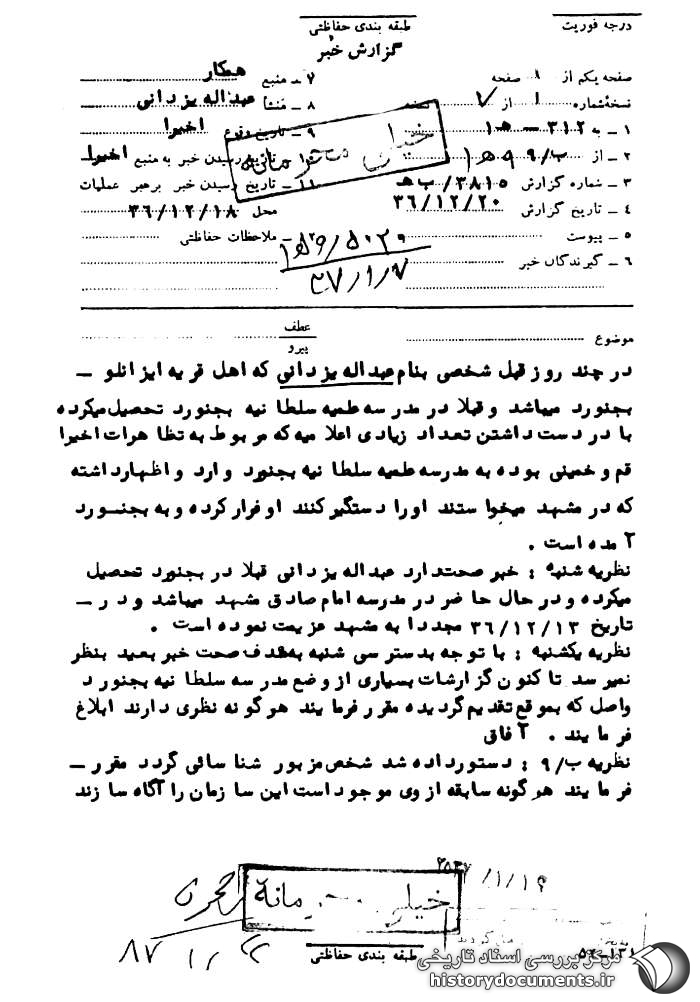 درجه فوریت
طبقه بندی حفاظتی
گزارش خبر
صفحه یکم از ۱ صفحه
نسخه شماره ۱ از ۷ نسخه
۱ ـ به ۳۱۲ ـ هـ ۱
۲ ـ از ب/۹ ۹ هـ ۱
۳ ـ شماره گزارش ۳۸۱۵/ب هـ
۴ ـ تاریخ گزارش ۳۶/۱۲/۲۰
۵ ـ پیوست
۶ ـ گیرندگان خبر
۷ ـ منبع همکار
۸ ـ منشأ عبداله یزدانی
۹ ـ تاریخ وقوع اخیرا
۱۰ ـ تاریخ رسیدن خبر به منبع اخیرا
۱۱ ـ تاریخ رسیدن خبر برهبر عملیات
محل ۳۶/۱۲/۱۸
ملاحظات حفاظتی
خیلی محرمانه
۳۷/۱/۷
موضوع
عطف
پیرو
در چند روز قبل شخصی بنام عبداله یزدانی که اهل قریه ایزانلو ـ
بجنورد میباشد و قبلا در مدرسه علمیه سلطانیه بجنورد تحصیل میکرده
با در دست داشتن تعداد زیادی اعلامیه که مربوط به تظاهرات اخیرا
قم و خمینی بوده به مدرسه علمیه سلطانیه بجنورد وارد و اظهار داشته
که در مشهد میخواستند او را دستگیر کنند او فرار کرده و به بجنورد
آمده است .
نظریه شنبه : خبر صحت دارد عبداله یزدانی قبلا در بجنورد تحصیل
میکرده و در حال حاضر در مدرسه امام صادق مشهد میباشد و در ـ
تاریخ ۳۶/۱۲/۱۳ مجددا به مشهد عزیمت نموده است .
نظریه یکشنبه : با توجه بدسترسی شنبه بهدف صحت خبر بعید بنظر
نمیرسد تا کنون گزارشات بسیاری از وضع مدرسه سلطانیه بجنورد
واصل که بموقع تقدیم گردیده مقرر فرمایند هرگونه نظری دارند ابلاغ
فرمایند . آفاق
نظریه ب/۹ : دستور داده شد شخص مزبور شناسائی گردد مقرر ـ
فرمایند هرگونه سابقه از وی موجود است این سازمان را آگاه سازند
خیلی محرمانه
طبقه بندی حفاظتی
مرکز بررسی اسناد تاریخی
historydocuments.ir